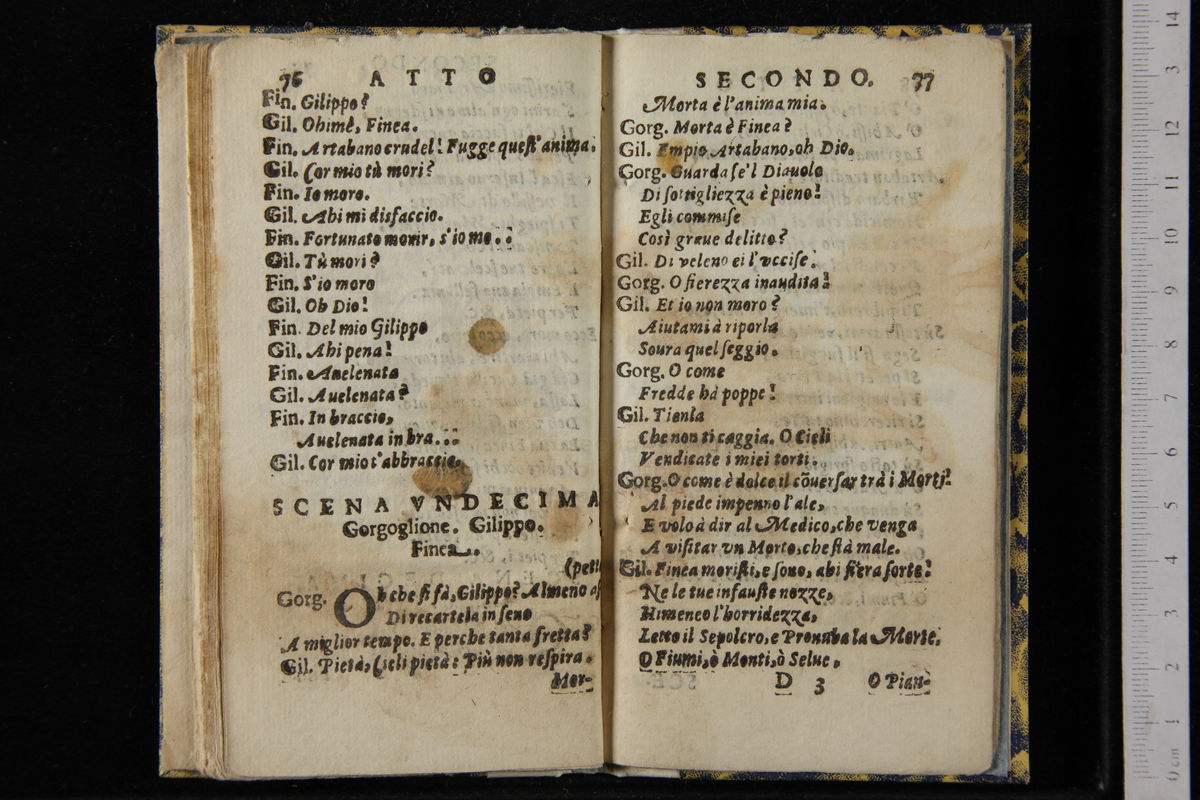 76 ATTO
Fin. Gilippo?
Gil. Ohimè, Finea.
Fin. Artabano crudel! Fugge quest'anima.
Gil. Cor mio tù mori?
Fin. Io moro.
Gil. Ahi mi disfaccio.
Fin. Fortunato morir, s'io mo..:
Gil. Tù mori?
Fin. S'io moro
Gil. Oh Dio!
Fin. Del mio Gilippo
Gil. Ahi pena!
Fin. Auelenata
Gil. Auelenata?
Fin. In braccio,
Auelenata in bra...
Gil. Cor mio t'abbraccio.
SCENA VNDECIMA
Gorgoglione. Gilippo.
Finea.
(pett
Gorg. Oh che si fà, Gilippo? Almeno as
Di recartela in seno
A miglior tempo. E perche tanta fretta?
Gil. Pietà, Cieli pietà: Più non respira.
Mor-
SECONDO. 77
Morta è l'anima mia.
Gorg. Morta è Finea?
Gil. Empio Artabano, oh Dio.
Gorg. Guarda se'l Diauolo
Di sottigliezza è pieno!
Egli commise
Così graue delitto?
Gil. Di veleno ei l'vccise!
Gorg. O fierezza inaudita!
Gil. Et io non moro?
Aiutami à riporla
Soura quel seggio.
Gorg. O come
Fredde hà poppe!
Gil. Tienla
Che non ti caggia. O Cieli
Vendicate i miei torti.
Gorg. O come è dolce il cõuersar trà i Morti!
Al piede impenno l'ale,
E volo à dir al Medico, che venga
A visitar vn Morto, che stà male.
Gil. Finea moristi, e sono, ahi fiera sorte!
Ne le tue infauste nozze,
Himeneo l'horridezza,
Letto il Sepolcro, e Pronuba la Morte.
O Fiumi, ò Monti, ò Selue,
D 3 O Pian-